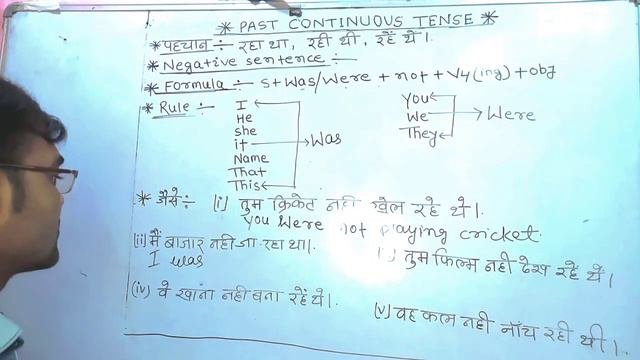 * PAST CONTINUOUS TENSE *
* पहचान ÷ रहा था, रही थी, रहें थें।
* Negative sentence ÷
* Formula ÷ S+Was/Were + not + V4(ing) + obj
* Rule ÷
I
He
she
it → Was
Name
That
This
You
We → Were
They
* जैसे ÷ (i) तुम क्रिकेट नही खेल रहे थे।
You Were not playing cricket.
(ii) मैं बाजार नही जा रहा था।
I was
तुम फिल्म नही देख रहें थें।
(iv) वे खाना नही बना रहें थे।
(v) वह कल नही नाँच रही थी।